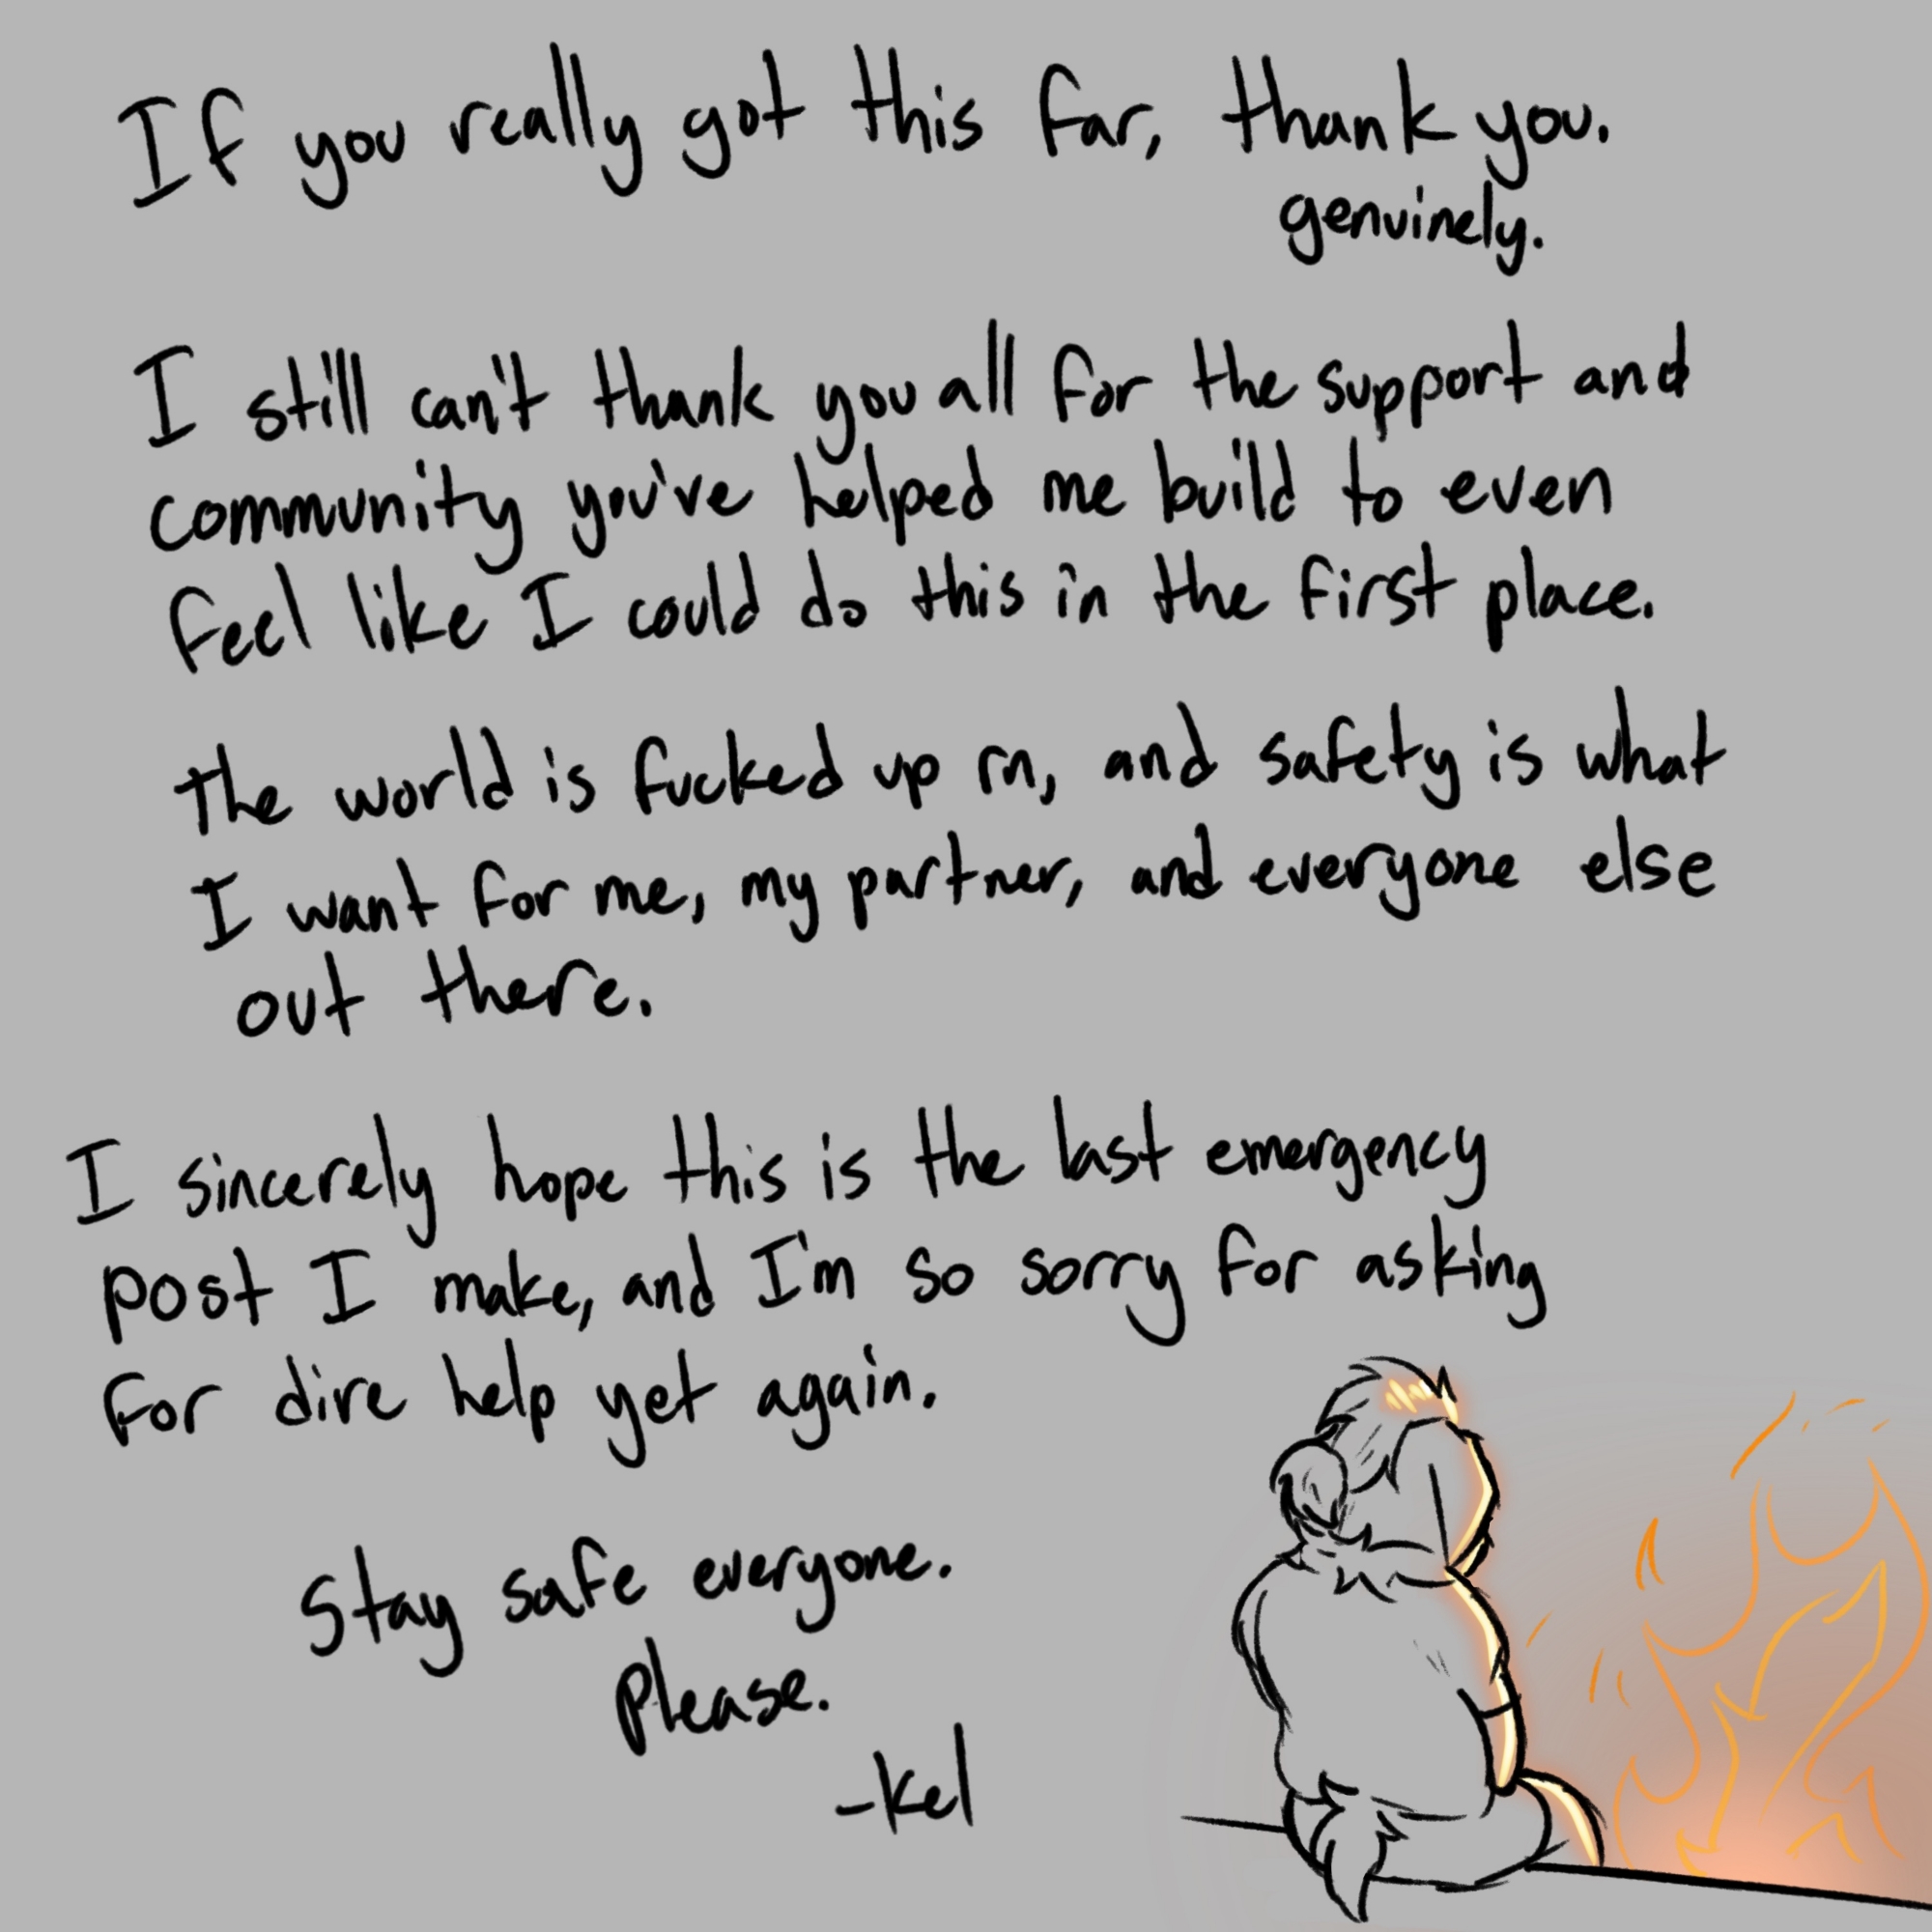 If you really got this far, thank you.
genuinely.
I still can't thank you all for the support and
community you've helped me build to even
feel like I could do this in the first place.
the world is fucked up rn, and safety is what
I want for me, my partner, and everyone else
out there.
I sincerely hope this is the last emergency
post I make, and I'm so sorry for asking
for dire help yet again.
Stay safe everyone.
please.
-Kel